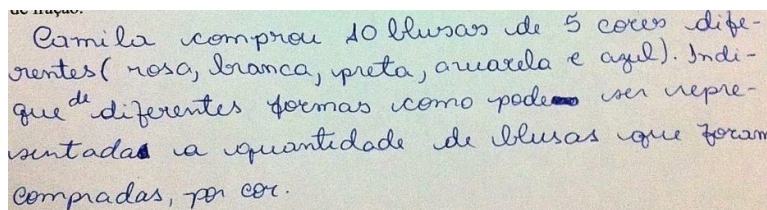 de fração.
Camila comprou 10 blusas de 5 cores dife-
rentes (rosa, branca, preta, amarela e azul). Indi-
que de diferentes formas como pode ser repre-
sentada a quantidade de blusas que foram
compradas, por cor.